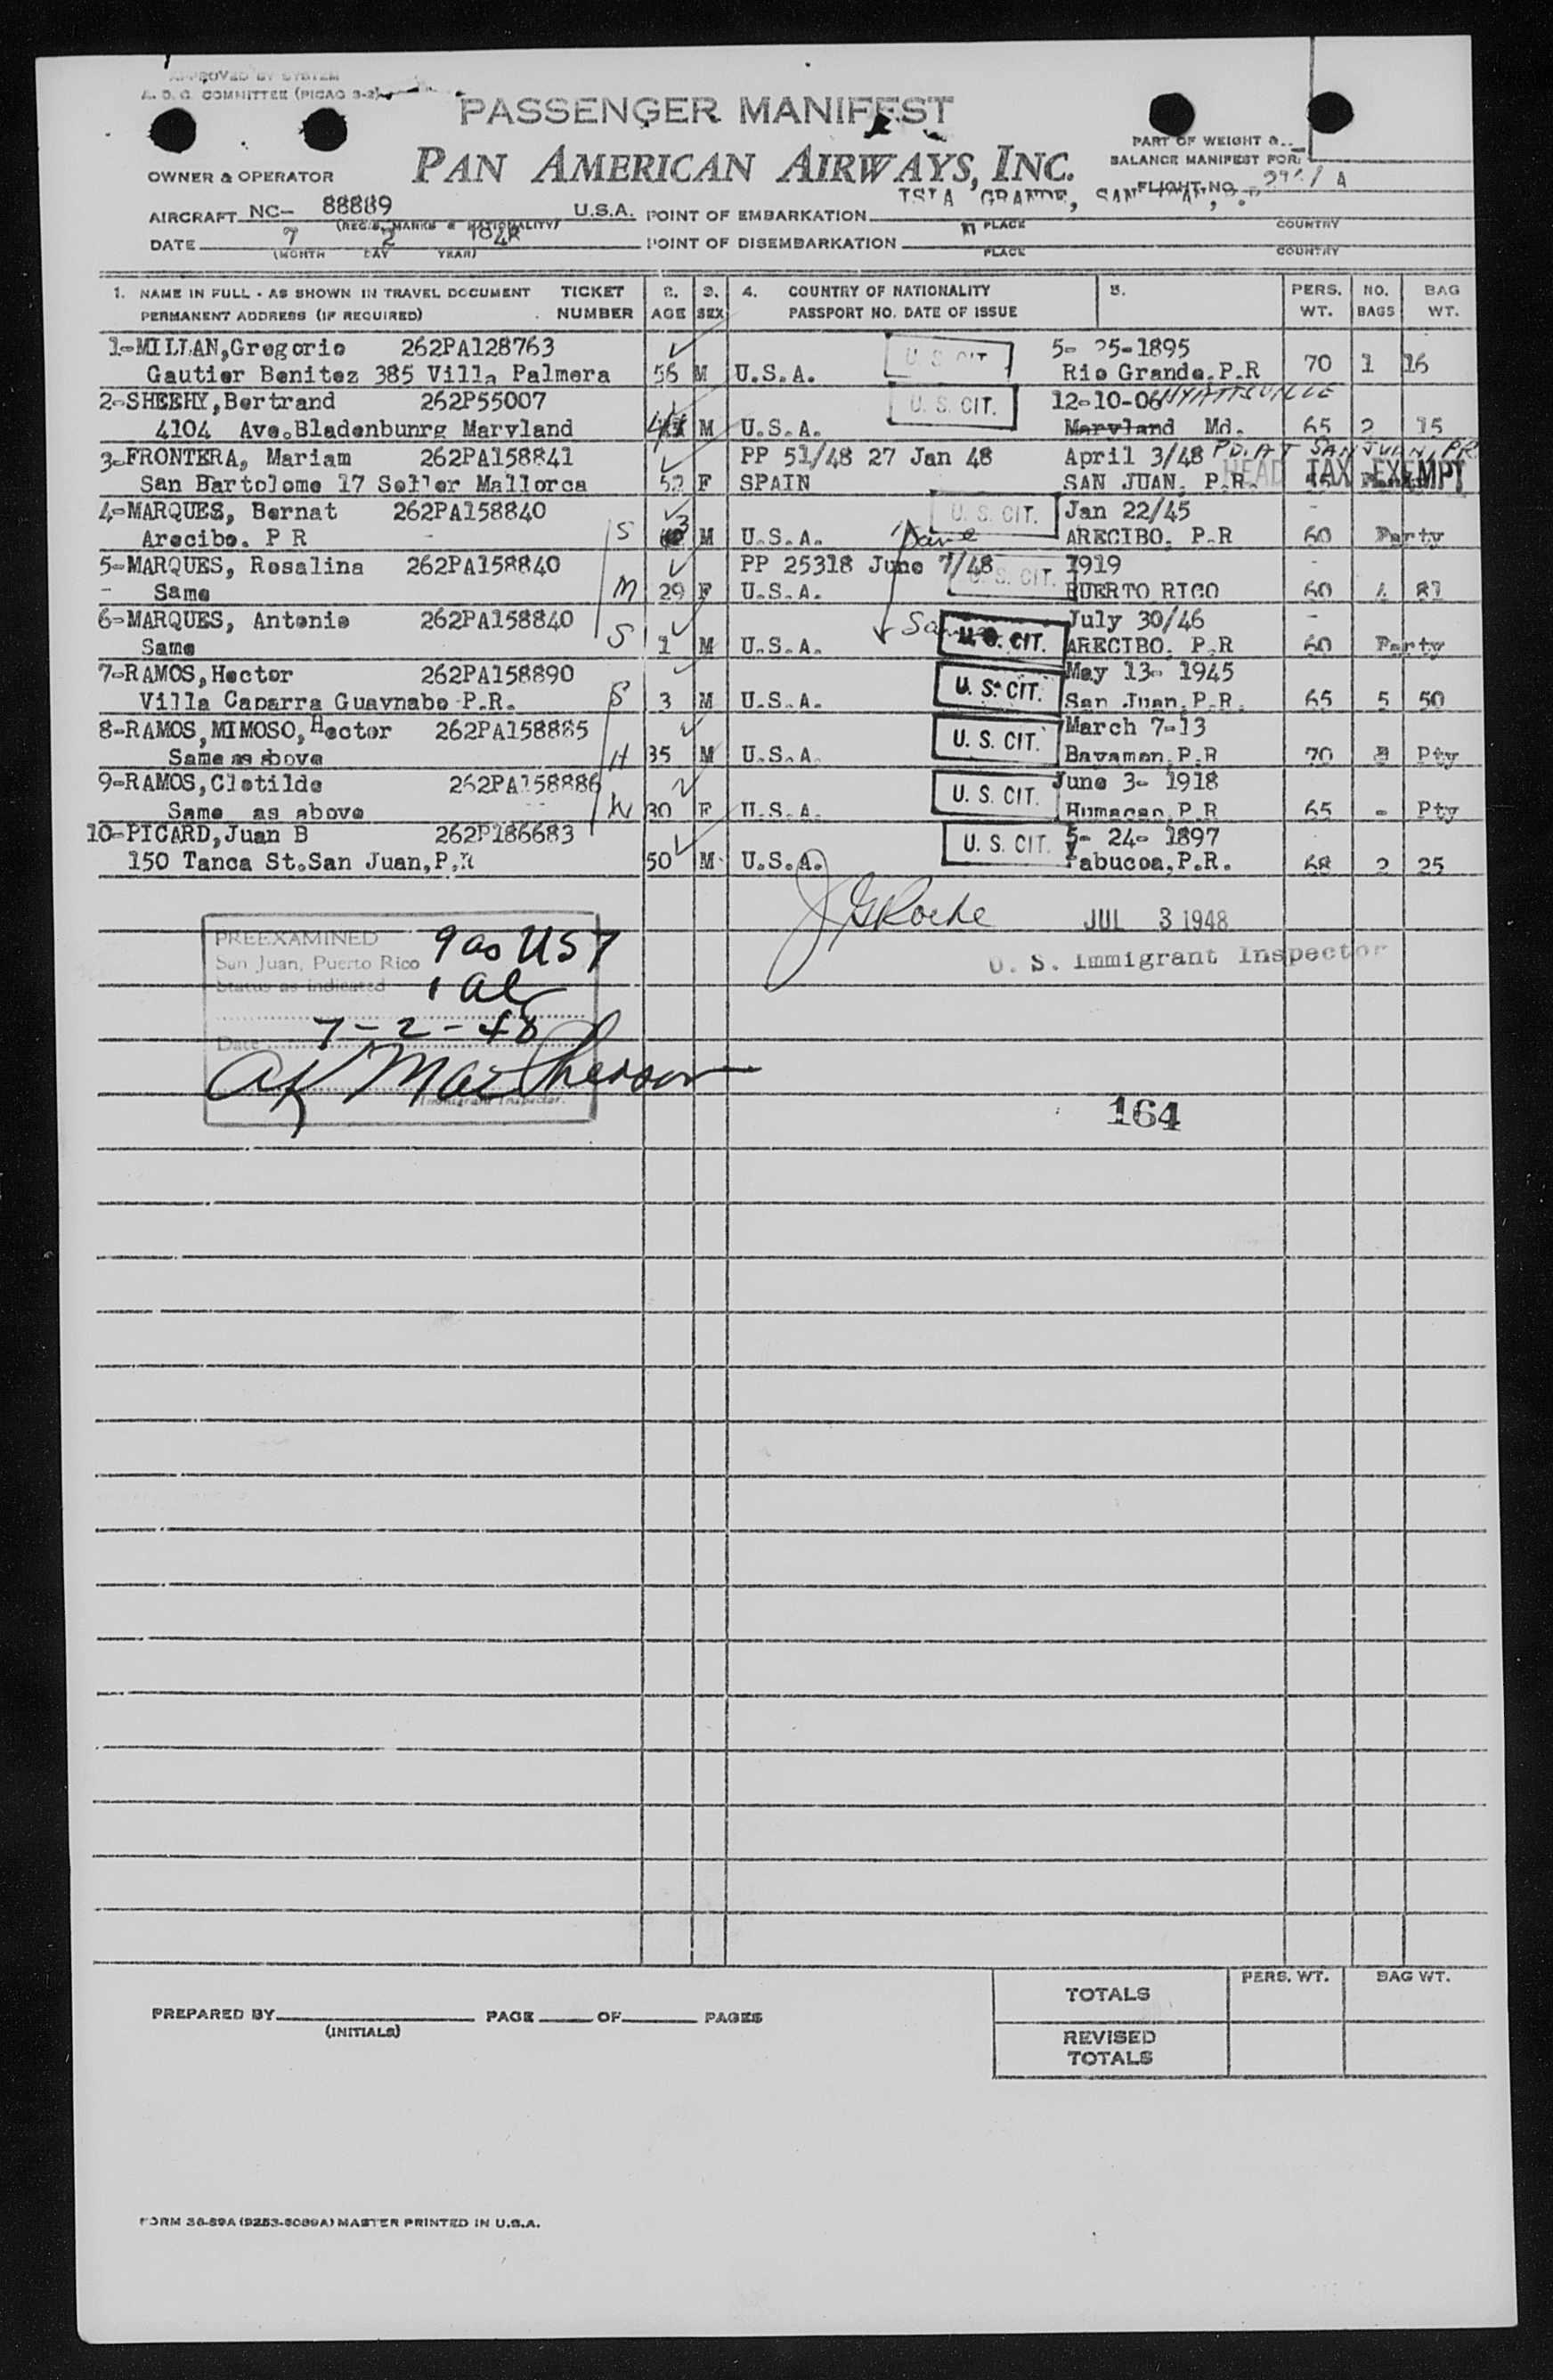 APPROVED BY SYSTEM
A. D. C. COMMITTEE (PICAO 3-2)
PASSENGER MANIFEST
PAN AMERICAN AIRWAYS, INC.
OWNER & OPERATOR
PART OF WEIGHT &
BALANCE MANIFEST FOR:
FLIGHT NO. A
AIRCRAFT NC- 88889 U.S.A.
(REG'S. MARKS & NATIONALITY)
POINT OF EMBARKATION ISLA GRANDE, SAN JUAN, P.R
PLACE COUNTRY
DATE 7 2 1948
(MONTH DAY YEAR)
POINT OF DISEMBARKATION
PLACE COUNTRY
1. NAME IN FULL - AS SHOWN IN TRAVEL DOCUMENT TICKET 2. 3. 4. COUNTRY OF NATIONALITY 5. PERS. NO. BAG
PERMANENT ADDRESS (IF REQUIRED) NUMBER AGE SEX PASSPORT NO. DATE OF ISSUE WT. BAGS WT.
1-MILLAN,Gregorio 262PA128763 U.S. CIT. 5- 25-1895
Gautier Benitez 385 Villa Palmera 56 M U.S.A. Rio Grande.P.R 70 1 16
2-SHEEHY,Bertrand 262P55007 U. S. CIT. 12-10-06 HYATTSVILLE
4104 Ave.Bladenbunrg Maryland M U.S.A. Maryland Md. 65 2 15
3-FRONTERA, Mariam 262PA158841 PP 51/48 27 Jan 48 April 3/48 PD. AT SAN JUAN, PR
San Bartolome 17 Soller Mallorca 52 F SPAIN SAN JUAN. P.R. HEAD TAX EXEMPT
4-MARQUES, Bernat 262PA158840 U. S. CIT. Jan 22/45
Arecibo. P R S 3 M U.S.A. Same ARECIBO. P.R 60 Party
5-MARQUES, Rosalina 262PA158840 PP 25318 June 7/48 U. S. CIT. 1919
- Same M 29 F U.S.A. PUERTO RICO 60 4 81
6-MARQUES, Antonio 262PA158840 July 30/46
Same S 1 M U.S.A. Same U. S. CIT. ARECIBO. P.R 60 Party
7-RAMOS,Hector 262PA158890 U. S. CIT. May 13- 1945
Villa Caparra Guaynabo P.R. S 3 M U.S.A. San Juan.P.R. 65 5 50
8-RAMOS,MIMOSO,Hector 262PA158885 U. S. CIT. March 7-13
Same as above H 35 M U.S.A. Bayamon.P.R 70 Pty
9-RAMOS,Clotilde 262PA158886 U. S. CIT. June 3- 1918
Same as above W 30 F U.S.A. Humacao.P.R 65 - Pty
10-PICARD,Juan B 262P186683 U. S. CIT. 5- 24- 1897
150 Tanca St.San Juan,P.R 50 M U.S.A. Yabucoa,P.R. 68 2 25
JUL 3 1948
U. S. Immigrant Inspector
PREEXAMINED 9 as US
San Juan, Puerto Rico
Status as indicated 1 al
Date 7-2-48
AK MacPherson
Immigrant Inspector.
164
TOTALS PERS. WT. BAG WT.
PREPARED BY PAGE OF PAGES
(INITIALS)
REVISED
TOTALS
FORM 36-89A (9253-6089A) MASTER PRINTED IN U.S.A.